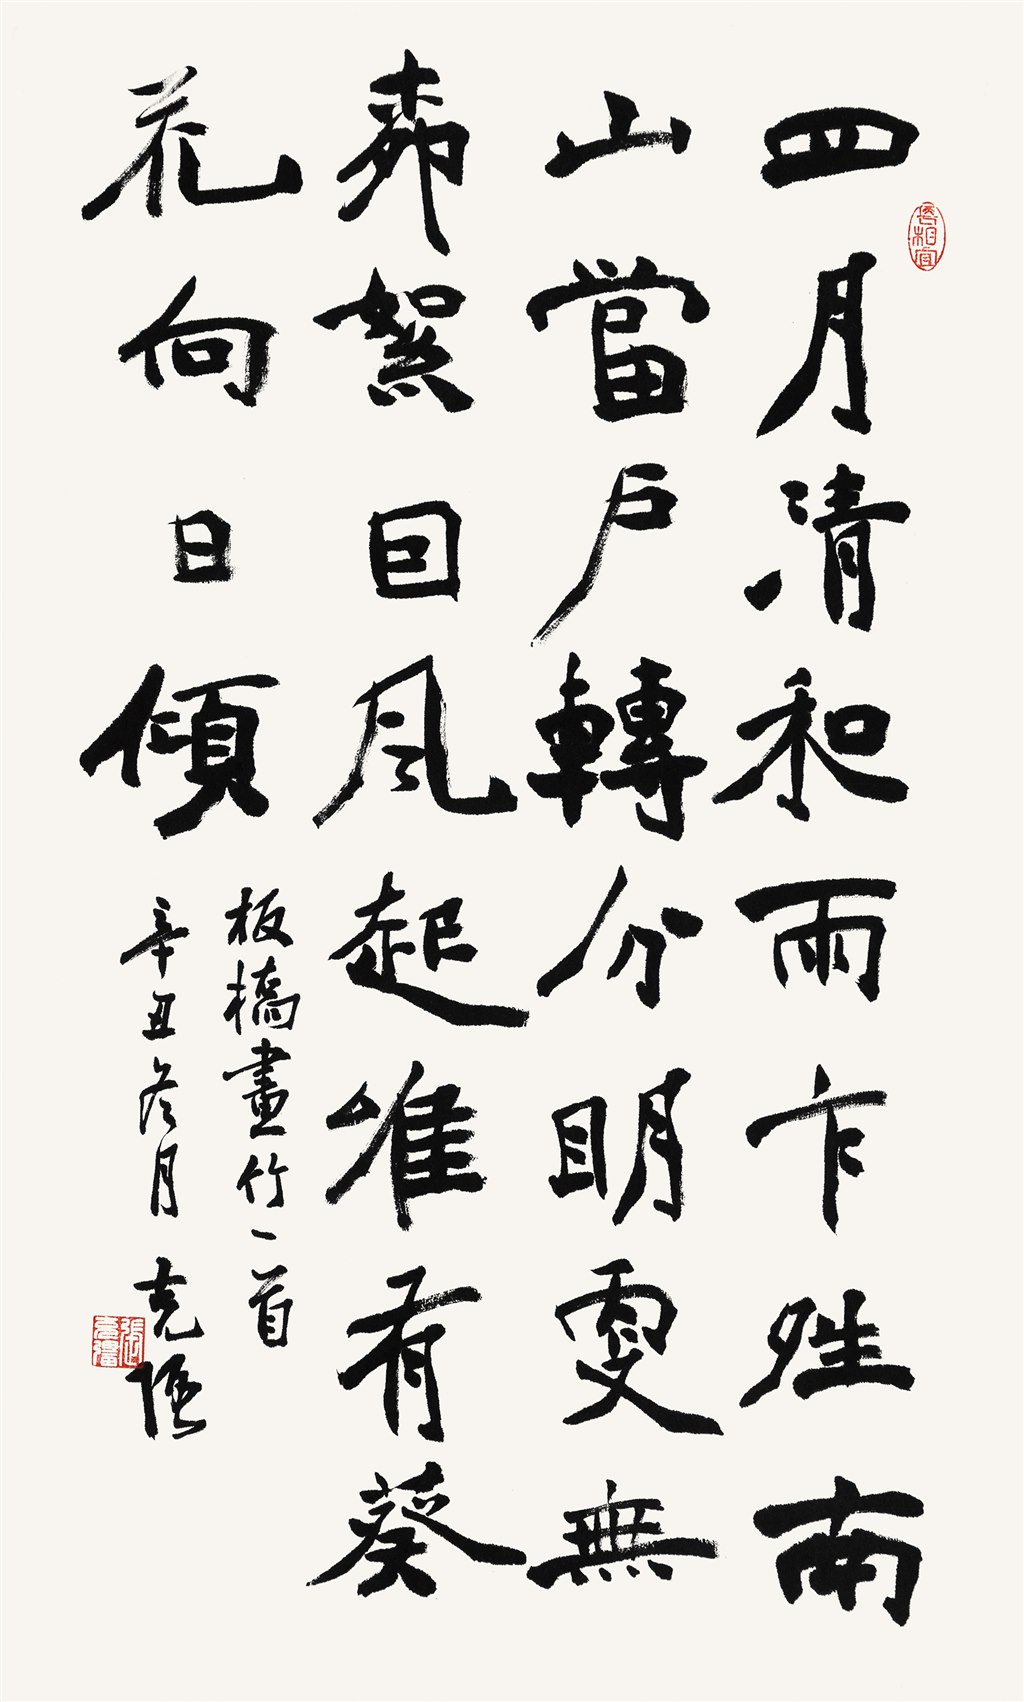 四月清和雨乍夝南
山當户轉分明更無
桺絮囙風起惟有葵
花向日傾
板橋畫竹一首
辛丑冬月 克强
長相宜